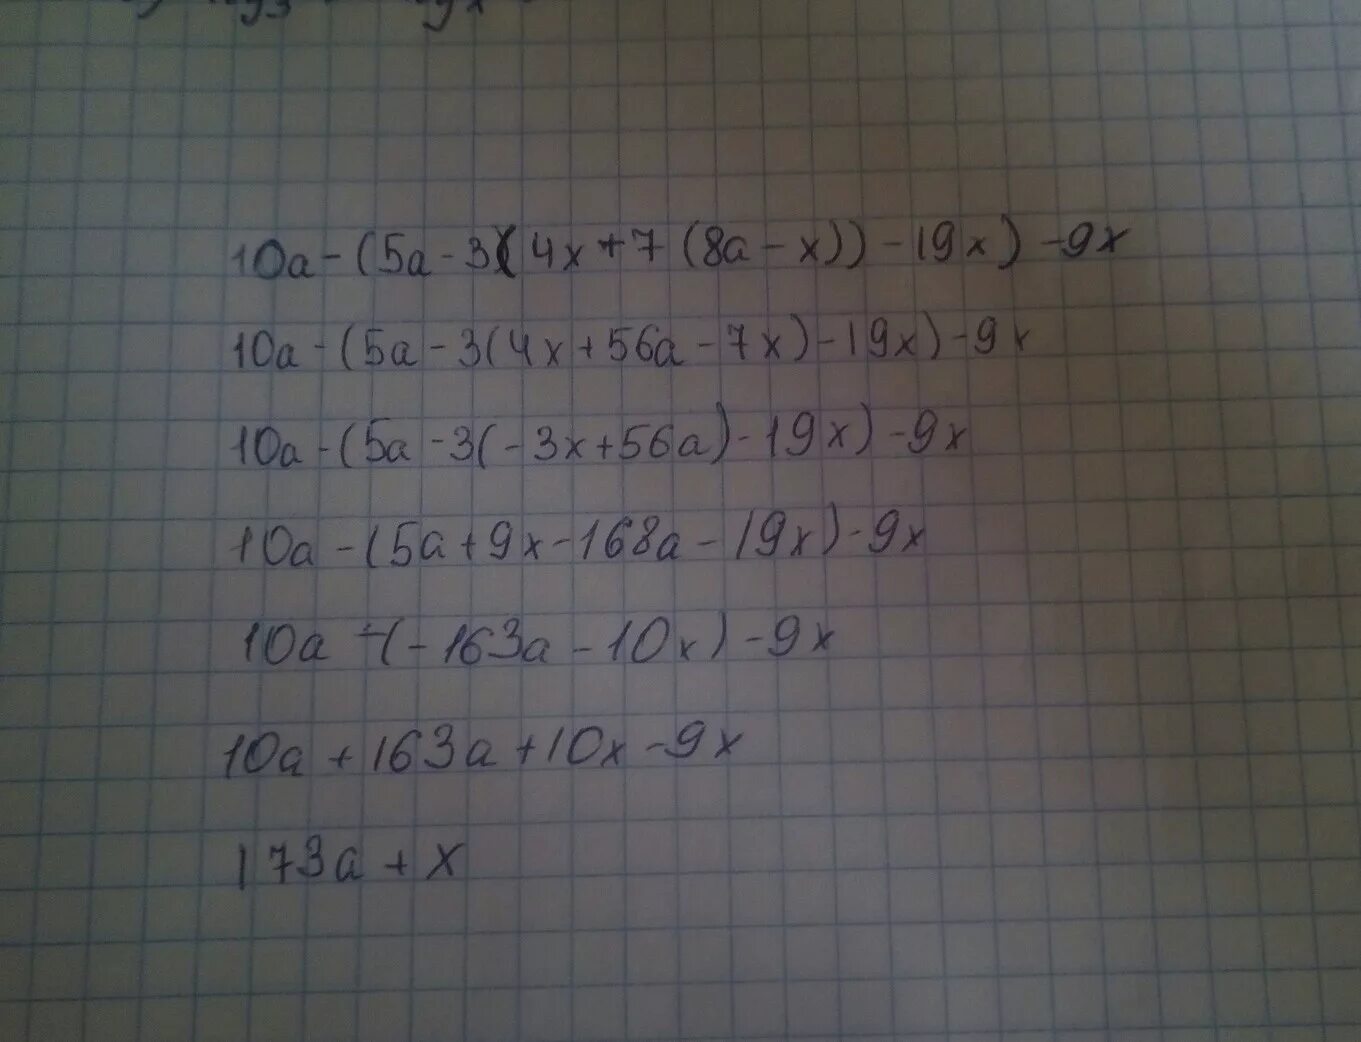 10a - (5a - 3(4x + 7(8a - x)) - 19x) - 9x
10a - (5a - 3(4x + 56a - 7x) - 19x) - 9x
10a - (5a - 3(-3x + 56a) - 19x) - 9x
10a - (5a + 9x - 168a - 19x) - 9x
10a - (-163a - 10x) - 9x
10a + 163a + 10x - 9x
173a + x